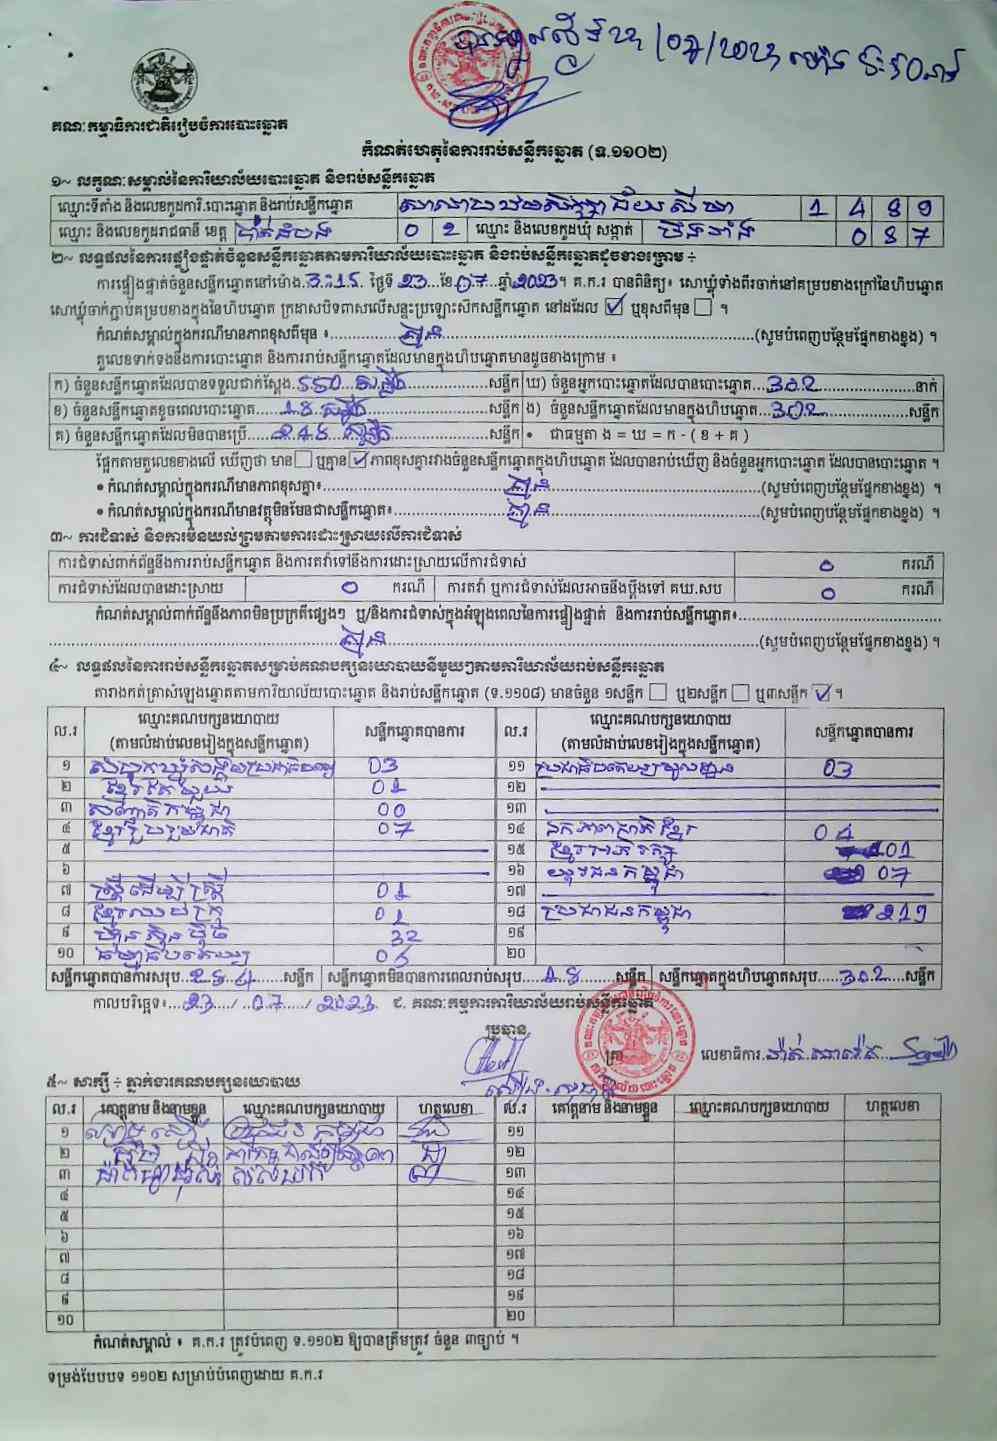 គណៈកម្មាធិការជាតិរៀបចំការបោះឆ្នោត
កំណត់ហេតុនៃការរាប់សន្លឹកឆ្នោត (ទ.១១០២)
១~ លក្ខណៈសម្គាល់នៃការិយាល័យបោះឆ្នោត និងរាប់សន្លឹកឆ្នោត
ឈ្មោះទីតាំង និងលេខកូដការិ.បោះឆ្នោត និងរាប់សន្លឹកឆ្នោត 1 4 8 9
ឈ្មោះ និងលេខកូដរាជធានី ខេត្ត បាត់ដំបង 0 2 ឈ្មោះ និងលេខកូដឃុំ សង្កាត់ 0 8 7
២~ លទ្ធផលនៃការផ្ទៀងផ្ទាត់ចំនួនសន្លឹកឆ្នោតតាមការិយាល័យបោះឆ្នោត និងរាប់សន្លឹកឆ្នោតដូចខាងក្រោម ÷
ការផ្ទៀងផ្ទាត់ចំនួនសន្លឹកឆ្នោតនៅម៉ោង 3:15 ថ្ងៃទី 23 ខែ 07 ឆ្នាំ 2023។ គ.ក.រ បានពិនិត្យ៖ សោឃ្លុំទាំងពីរចាក់នៅគម្របខាងក្រៅនៃហិបឆ្នោត
សោឃ្លុំចាក់ភ្ជាប់គម្របខាងក្នុងនៃហិបឆ្នោត ក្រដាសបិទពាសលើសន្ទះប្រឡោះសឹកសន្លឹកឆ្នោត នៅដដែល ☑ ឬខុសពីមុន ☐ ។
កំណត់សម្គាល់ក្នុងករណីមានភាពខុសពីមុន ៖ គ្មាន (សូមបំពេញបន្ថែមផ្នែកខាងខ្នង) ។
តួលេខទាក់ទងនឹងការបោះឆ្នោត និងការរាប់សន្លឹកឆ្នោតដែលមានក្នុងហិបឆ្នោតមានដូចខាងក្រោម ៖
ក) ចំនួនសន្លឹកឆ្នោតដែលបានទទួលជាក់ស្តែង 550 សន្លឹក ឃ) ចំនួនអ្នកបោះឆ្នោតដែលបានបោះឆ្នោត 302 នាក់
ខ) ចំនួនសន្លឹកឆ្នោតខូចពេលបោះឆ្នោត សន្លឹក ង) ចំនួនសន្លឹកឆ្នោតដែលមានក្នុងហិបឆ្នោត 302 សន្លឹក
គ) ចំនួនសន្លឹកឆ្នោតដែលមិនបានប្រើ សន្លឹក • ជាធម្មតា ង = ឃ = ក - ( ខ + គ )
ផ្អែកតាមតួលេខខាងលើ ឃើញថា មាន ☐ ឬគ្មាន ☑ ភាពខុសគ្នារវាងចំនួនសន្លឹកឆ្នោតក្នុងហិបឆ្នោត ដែលបានរាប់ឃើញ និងចំនួនអ្នកបោះឆ្នោត ដែលបានបោះឆ្នោត ។
• កំណត់សម្គាល់ក្នុងករណីមានភាពខុសគ្នា៖ គ្មាន (សូមបំពេញបន្ថែមផ្នែកខាងខ្នង) ។
• កំណត់សម្គាល់ក្នុងករណីមានវត្ថុមិនមែនជាសន្លឹកឆ្នោត៖ គ្មាន (សូមបំពេញបន្ថែមផ្នែកខាងខ្នង) ។
៣~ ការជំទាស់ និងការមិនយល់ព្រមតាមការដោះស្រាយលើការជំទាស់
ការជំទាស់ពាក់ព័ន្ធនឹងការរាប់សន្លឹកឆ្នោត និងការតវ៉ាទៅនឹងការដោះស្រាយលើការជំទាស់ 0 ករណី
ការជំទាស់ដែលបានដោះស្រាយ 0 ករណី ការតវ៉ា ឬការជំទាស់ដែលអាចនឹងប្តឹងទៅ គឃ.សប 0 ករណី
កំណត់សម្គាល់ពាក់ព័ន្ធនឹងភាពមិនប្រក្រតីផ្សេងៗ ឬ/និងការជំទាស់ក្នុងអំឡុងពេលនៃការផ្ទៀងផ្ទាត់ និងការរាប់សន្លឹកឆ្នោត៖
គ្មាន (សូមបំពេញបន្ថែមផ្នែកខាងខ្នង) ។
៤~ លទ្ធផលនៃការរាប់សន្លឹកឆ្នោតសម្រាប់គណបក្សនយោបាយនីមួយៗតាមការិយាល័យរាប់សន្លឹកឆ្នោត
តារាងកត់ត្រាសំឡេងឆ្នោតតាមការិយាល័យបោះឆ្នោត និងរាប់សន្លឹកឆ្នោត (ទ.១១០៨) មានចំនួន ១សន្លឹក ☐ ឬ២សន្លឹក ☐ ឬ៣សន្លឹក ☑ ។
ល.រ ឈ្មោះគណបក្សនយោបាយ (តាមលំដាប់លេខរៀងក្នុងសន្លឹកឆ្នោត) សន្លឹកឆ្នោតបានការ ល.រ ឈ្មោះគណបក្សនយោបាយ (តាមលំដាប់លេខរៀងក្នុងសន្លឹកឆ្នោត) សន្លឹកឆ្នោតបានការ
១ 03 ១១ 03
២ ១២
៣ 00 ១៣
៤ ខ្មែររួបរួមជាតិ 07 ១៤ ឯកភាពជាតិខ្មែរ 04
៥ ១៥ ខ្មែរអភិរក្ស 01
៦ ១៦ យុវជនកម្ពុជា 07
៧ ស្ត្រីដើម្បីស្ត្រី ១៧
៨ ខ្មែរឈប់ក្រ ១៨ ប្រជាជនកម្ពុជា 219
៩ ហ៊្វុនស៊ិនប៉ិច 32 ១៩
១០ ធម្មាធិបតេយ្យ ២០
សន្លឹកឆ្នោតបានការសរុប 284 សន្លឹក សន្លឹកឆ្នោតមិនបានការពេលរាប់សរុប 18 សន្លឹក សន្លឹកឆ្នោតក្នុងហិបឆ្នោតសរុប 302 សន្លឹក
កាលបរិច្ឆេទ៖ 23 / 07 / 2023 ជ. គណៈកម្មការការិយាល័យរាប់សន្លឹកឆ្នោត
ប្រធាន
លេខាធិការ
៥~ សាក្សី ÷ ភ្នាក់ងារគណបក្សនយោបាយ
ល.រ គោត្តនាម និងនាមខ្លួន ឈ្មោះគណបក្សនយោបាយ ហត្ថលេខា ល.រ គោត្តនាម និងនាមខ្លួន ឈ្មោះគណបក្សនយោបាយ ហត្ថលេខា
១ ១១
២ ១២
៣ ១៣
៤ ១៤
៥ ១៥
៦ ១៦
៧ ១៧
៨ ១៨
៩ ១៩
១០ ២០
កំណត់សម្គាល់ ៖ គ.ក.រ ត្រូវបំពេញ ទ.១១០២ ឱ្យបានត្រឹមត្រូវ ចំនួន ៣ច្បាប់ ។
ទម្រង់បែបបទ ១១០២ សម្រាប់បំពេញដោយ គ.ក.រ